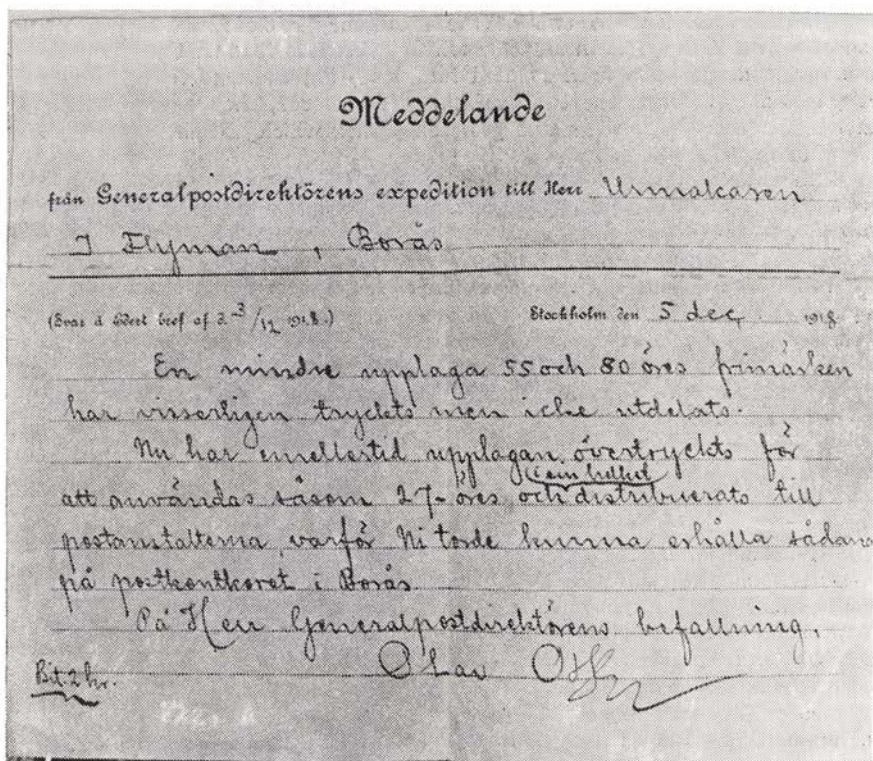 Meddelande
från Generalpostdirektörens expedition till Herr Urmakaren
J Flyman, Borås
(Svar å Edert bref af d. 3/12 1918.) Stockholm den 5 dec. 1918.
En mindre upplaga 55 och 80 öres frimärken
har visserligen tryckts men icke utdelats.
Nu har emellertid upplagan övertryckts för
(i sin helhet
att användas såsom 27-öres och distribuerats till
postanstalterna, varför Ni torde kunna erhålla sådana
på postkontoret i Borås.
På Herr Generalpostdirektörens befallning.
Olav
Bil. 2 kr.